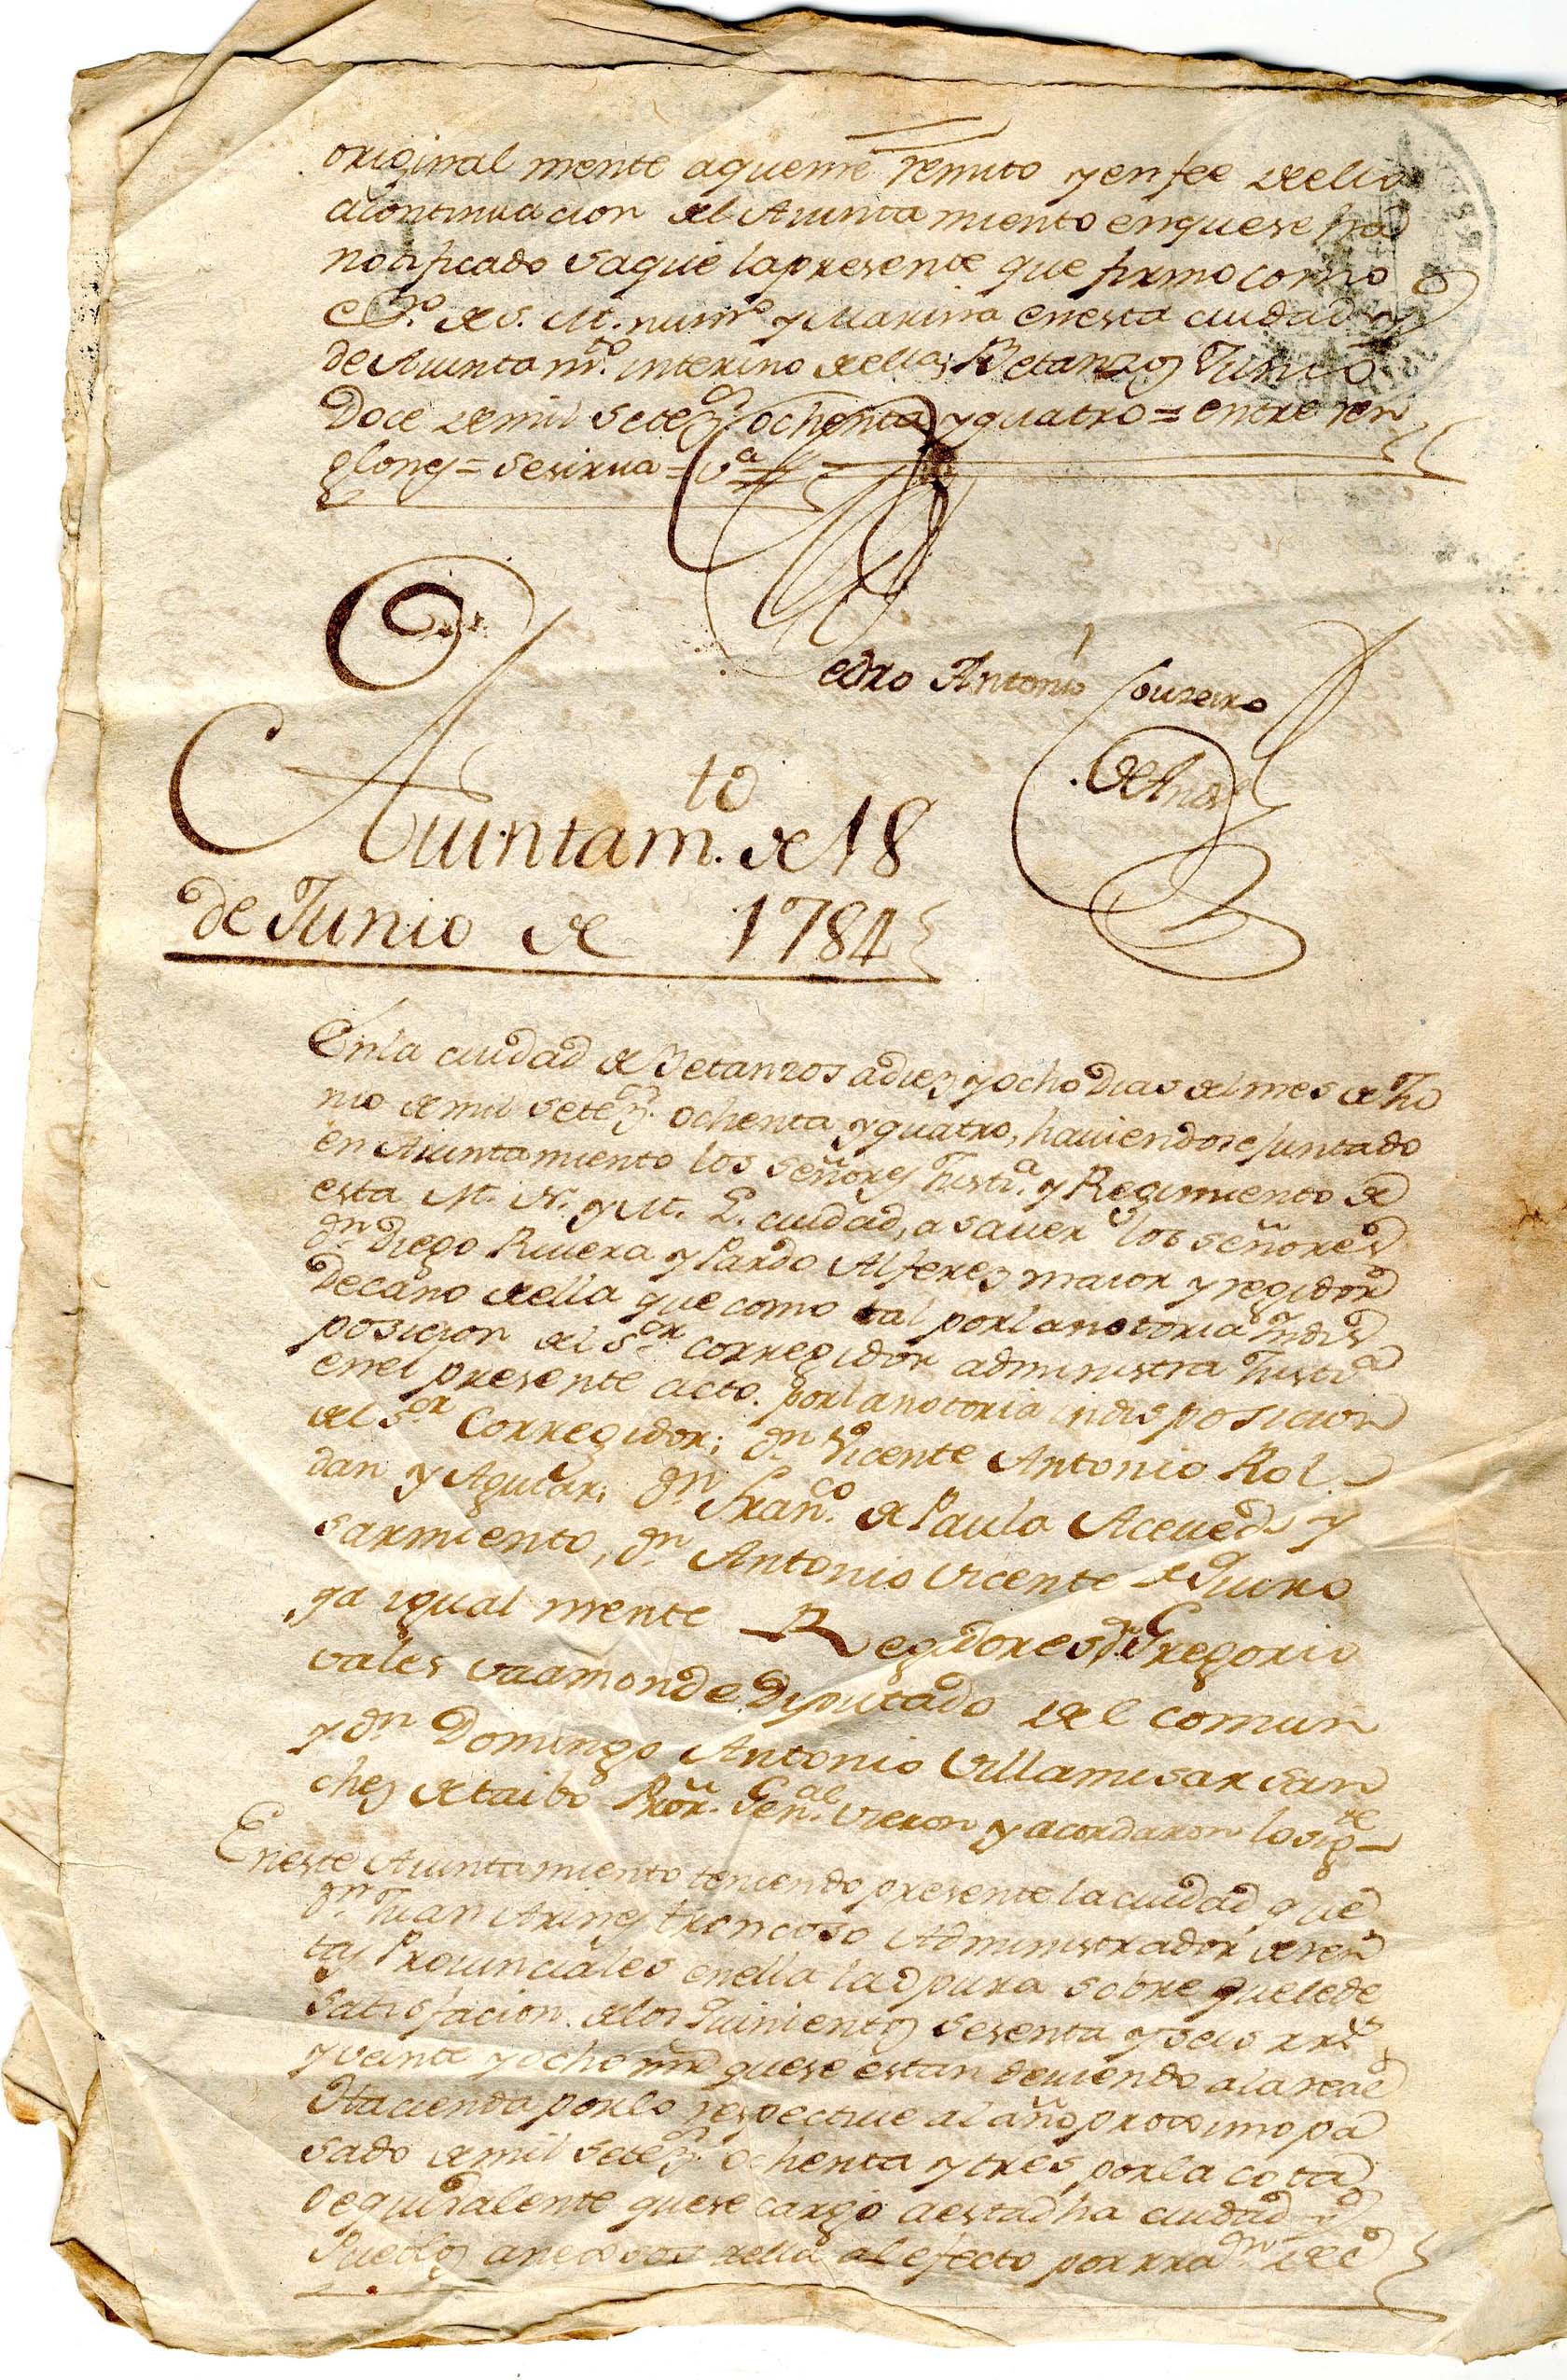 original mente aqueme remito y en fee de ello
acontinuacion del Aiuntamiento enquese ha
notificado saque lapresente que firmo como
de S. M. num.º y Marina enesta ciudad y
de Aiuntam.to interino de ella Betanzos Junio
Doce de mil setez.s ochenta y quatro = entre ren
glones = sesirua = v.a
Pedro Antonio Coureiro
Aiuntam.to de 18
de Junio de 1784
Enla ciudad de Betanzos adiez y ocho Dias del mes de Ju
nio de mil setez.s ochenta y quatro, haviendose juntado
en Aiuntamiento los señores Justi.a y Regimiento de
esta M. N. y M. L. ciudad, a saver los señores
Dn Diego Rivera y Pardo Alferez maior y regidor
Decano de ella que como tal porlanotoria Indis
posicion del S.or corregidor administra Justi.a
enel presente acto. porlanotoria indisposicion
del S.or Corregidor; Dn Vicente Antonio Rol
dan y Aguiar; Dn Fran.co de Paula Acevedo y
sarmiento, Dn Antonio Vicente de Quiro
ga igual mente Regidores, Dn Gregorio
vales vaamonde Diputado del comun
y Dn Domingo Antonio Villamisar San
chez de taibo Pror. Gen.al vieron y acordaron losig.te
Eneste Aiuntamiento teniendo presente laciudad que
Dn Juan Arines troncoso Administrador de ren
tas Provinciales enella la apura sobre quelede
satisfacion delos Quinientos sesenta y seis rr.s
y veinte y ocho mrs quese estan deviendo ala real
Hacienda porlo respective al año proximo pa
sado de mil setez.s ochenta y tres, porla cota
o equivalente quese cargo aestadha ciudad y
Pueblos anexos de ella al efecto por rra.on de el